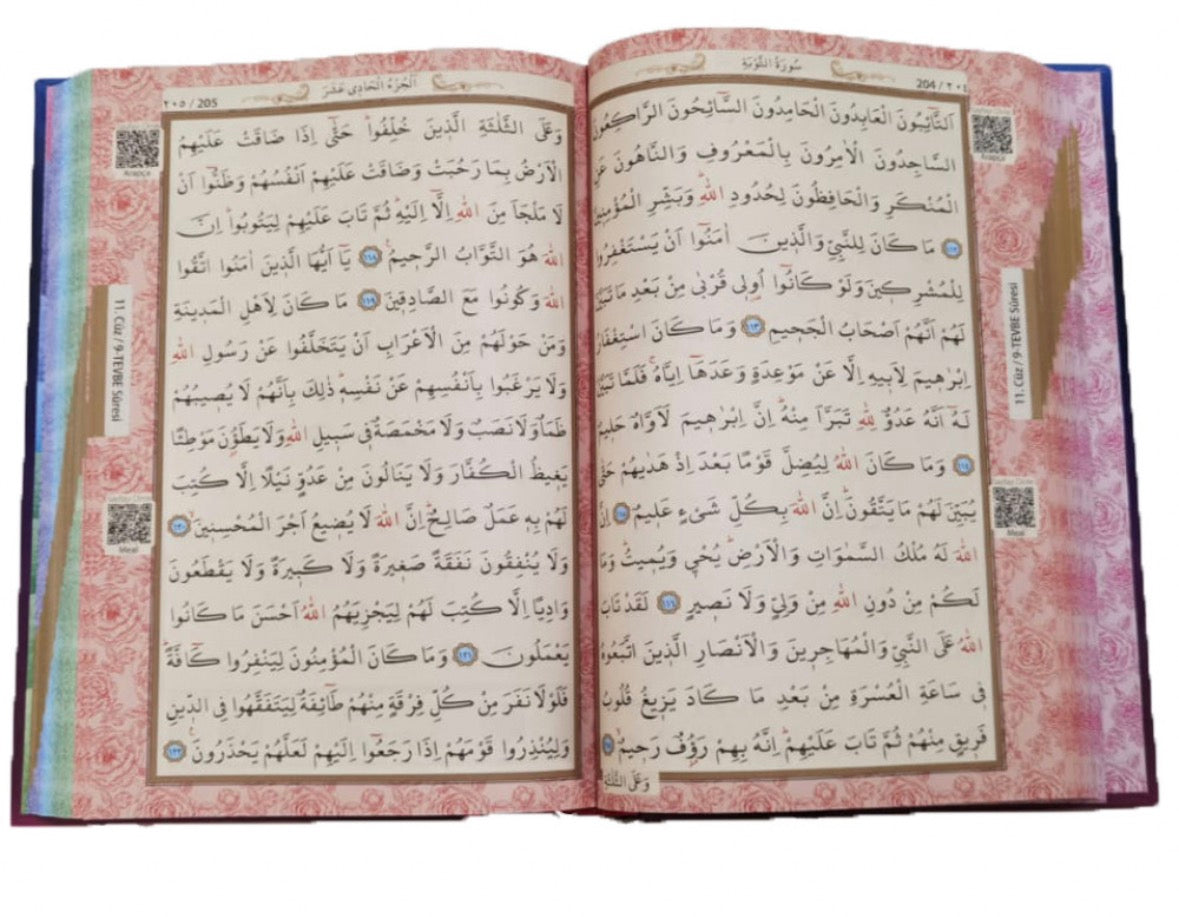 سُورَةُ التَّوْبَةِ
204 / ٢٠٤
اَلتَّٓائِبُونَ الْعَابِدُونَ الْحَامِدُونَ السَّٓائِحُونَ الرَّاكِعُونَ
السَّاجِدُونَ الْاٰمِرُونَ بِالْمَعْرُوفِ وَالنَّاهُونَ عَنِ
الْمُنْكَرِ وَالْحَافِظُونَ لِحُدُودِ اللّٰهِ وَبَشِّرِ الْمُؤْمِنٖينَ
﴿١١٢﴾ مَا كَانَ لِلنَّبِيِّ وَالَّذٖينَ اٰمَنُٓوا اَنْ يَسْتَغْفِرُوا
لِلْمُشْرِكٖينَ وَلَوْ كَانُٓوا اُو۬لٖي قُرْبٰى مِنْ بَعْدِ مَا تَبَيَّنَ
لَهُمْ اَنَّهُمْ اَصْحَابُ الْجَحٖيمِ ﴿١١٣﴾ وَمَا كَانَ اسْتِغْفَارُ
اِبْرٰهٖيمَ لِاَبٖيهِ اِلَّا عَنْ مَوْعِدَةٍ وَعَدَهَٓا اِيَّاهُۚ فَلَمَّا تَبَيَّنَ
لَهُٓ اَنَّهُ عَدُوٌّ لِلّٰهِ تَبَرَّاَ مِنْهُؕ اِنَّ اِبْرٰهٖيمَ لَاَوَّاهٌ حَلٖيمٌ
﴿١١٤﴾ وَمَا كَانَ اللّٰهُ لِيُضِلَّ قَوْمًا بَعْدَ اِذْ هَدٰيهُمْ حَتّٰى
يُبَيِّنَ لَهُمْ مَا يَتَّقُونَؕ اِنَّ اللّٰهَ بِكُلِّ شَيْءٍ عَلٖيمٌ ﴿١١٥﴾ اِنَّ
اللّٰهَ لَهُ مُلْكُ السَّمٰوَاتِ وَالْاَرْضِؕ يُحْيٖ وَيُمٖيتُؕ وَمَا
لَكُمْ مِنْ دُونِ اللّٰهِ مِنْ وَلِيٍّ وَلَا نَصٖيرٍ ﴿١١٦﴾ لَقَدْ تَابَ
اللّٰهُ عَلَى النَّبِيِّ وَالْمُهَاجِرٖينَ وَالْاَنْصَارِ الَّذٖينَ اتَّبَعُوهُ
فٖي سَاعَةِ الْعُسْرَةِ مِنْ بَعْدِ مَا كَادَ يَزٖيغُ قُلُوبُ
فَرٖيقٍ مِنْهُمْ ثُمَّ تَابَ عَلَيْهِمْؕ اِنَّهُ بِهِمْ رَؤُ۫فٌ رَحٖيمٌ ﴿١١٧﴾
وَعَلَى الثَّلٰثَةِ
Arapça
11. Cüz / 9-TEVBE Sûresi
Meal
اَلْجُزْءُ الْحَادِي عَشَرَ
٢٠٥ / 205
وَعَلَى الثَّلٰثَةِ الَّذٖينَ خُلِّفُواؕ حَتّٰٓى اِذَا ضَاقَتْ عَلَيْهِمُ
الْاَرْضُ بِمَا رَحُبَتْ وَضَاقَتْ عَلَيْهِمْ اَنْفُسُهُمْ وَظَنُّٓوا اَنْ
لَا مَلْجَاَ مِنَ اللّٰهِ اِلَّٓا اِلَيْهِؕ ثُمَّ تَابَ عَلَيْهِمْ لِيَتُوبُواؕ اِنَّ
اللّٰهَ هُوَ التَّوَّابُ الرَّحٖيمُ ﴿١١٨﴾ يَٓا اَيُّهَا الَّذٖينَ اٰمَنُوا اتَّقُوا
اللّٰهَ وَكُونُوا مَعَ الصَّادِقٖينَ ﴿١١٩﴾ مَا كَانَ لِاَهْلِ الْمَدٖينَةِ
وَمَنْ حَوْلَهُمْ مِنَ الْاَعْرَابِ اَنْ يَتَخَلَّفُوا عَنْ رَسُولِ اللّٰهِ
وَلَا يَرْغَبُوا بِاَنْفُسِهِمْ عَنْ نَفْسِهٖؕ ذٰلِكَ بِاَنَّهُمْ لَا يُصٖيبُهُمْ
ظَمَاٌ وَلَا نَصَبٌ وَلَا مَخْمَصَةٌ فٖي سَبٖيلِ اللّٰهِ وَلَا يَطَؤُ۫نَ مَوْطِئًا
يَغٖيظُ الْكُفَّارَ وَلَا يَنَالُونَ مِنْ عَدُوٍّ نَيْلًا اِلَّا كُتِبَ
لَهُمْ بِهٖ عَمَلٌ صَالِحٌؕ اِنَّ اللّٰهَ لَا يُضٖيعُ اَجْرَ الْمُحْسِنٖينَ ﴿١٢٠﴾
وَلَا يُنْفِقُونَ نَفَقَةً صَغٖيرَةً وَلَا كَبٖيرَةً وَلَا يَقْطَعُونَ
وَادِيًا اِلَّا كُتِبَ لَهُمْ لِيَجْزِيَهُمُ اللّٰهُ اَحْسَنَ مَا كَانُوا
يَعْمَلُونَ ﴿١٢١﴾ وَمَا كَانَ الْمُؤْمِنُونَ لِيَنْفِرُوا كَٓافَّةًؕ
فَلَوْلَا نَفَرَ مِنْ كُلِّ فِرْقَةٍ مِنْهُمْ طَٓائِفَةٌ لِيَتَفَقَّهُوا فِي الدّٖينِ
وَلِيُنْذِرُوا قَوْمَهُمْ اِذَا رَجَعُٓوا اِلَيْهِمْ لَعَلَّهُمْ يَحْذَرُونَ ﴿١٢٢﴾
Arapça
11. Cüz / 9-TEVBE Sûresi
Meal